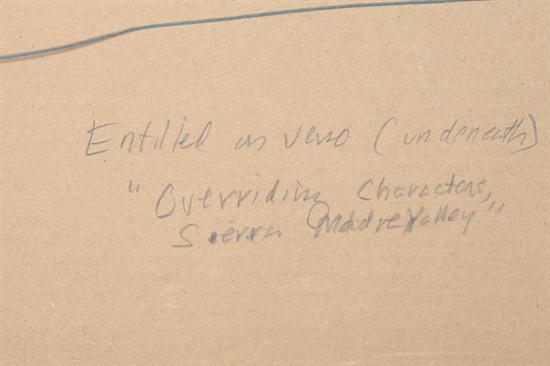 Entitled on verso (underneath)
"Overriding Characters,
Sierra Madre Valley"